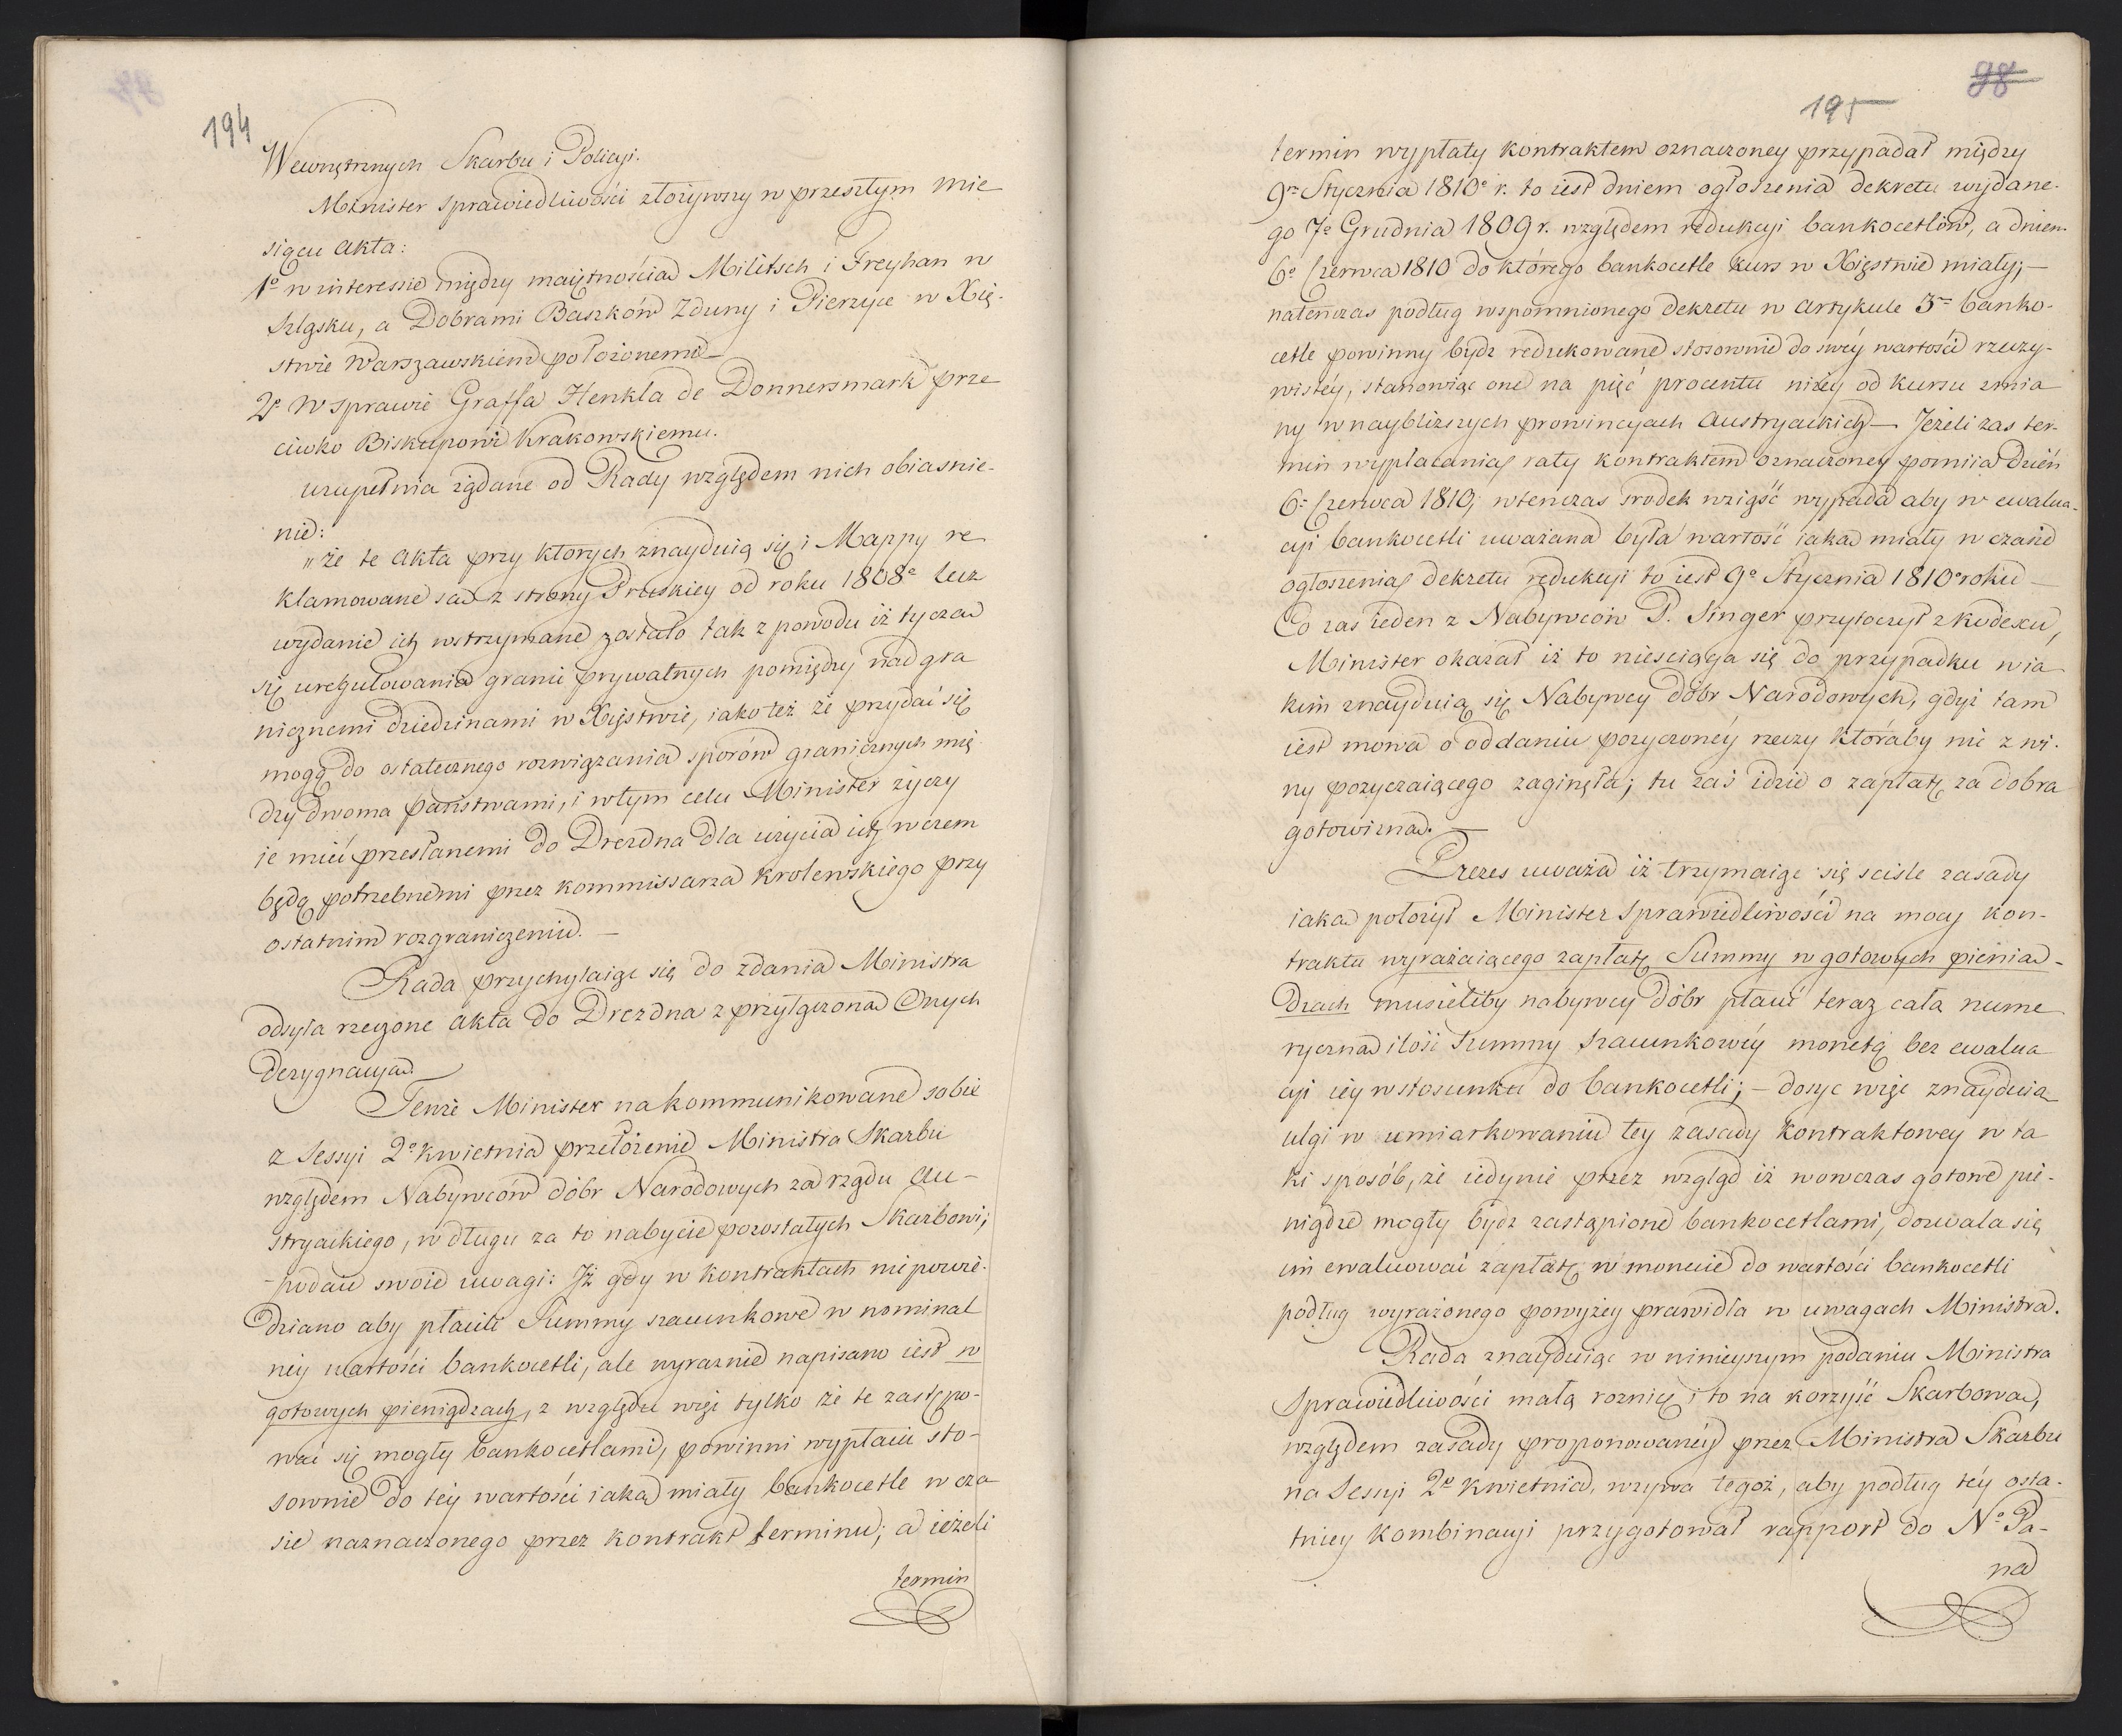 194
Wewnętrznych Skarbu i Policyi.
Minister Sprawiedliwości złożywszy w przeszłym mie
siącu Akta:
1º w interessie między maiętnościa Militsch i Freyhan w
Szląsku, a Dobrami Baszków Zduny i Pierzyce w Xię-
stwie Warszawskiem położonemi —
2º W sprawie Graffa Henkla de Donnersmark prze
ciwko Biskupowi Krakowskiemu.
uzupełnia żądane od Rady względem nich obiasnie-
nie:
„że te Akta przy ktorych znayduią się i Mappy re
klamowane są z strony Pruskiey od roku 1808º lecz
wydanie ich wstrzymane zostało tak z powodu iż tycza
się uregulowania granic prywatnych pomiędzy nadgra
nicznemi dziedzinami w Xięstwie, iako też że przydać się
mogą do ostatecznego rozwiązania sporów granicznych mię
dzy dwoma państwami, i w tym celu Minister życzy
ie mieć przesłanemi do Drezna dla użycia ich w czem
będą potrzebnemi przez kommissarza Krolewskiego przy
ostatnim rozgraniczeniu. —
Rada przychylaiąc się do zdania Ministra
odsyła rzeczone Akta do Drezdna z przyłączona Onych
Dezygnacya.
Tenże Minister na kommunikowane sobie
z Sessyi 2º Kwietnia przełożenie Ministra Skarbu
względem Nabywców dóbr Narodowych za rządu Au-
stryackiego, w długu za to nabycie pozostałych Skarbowi;
– podaie swoie uwagi: Iż gdy w kontraktach nie powie-
dziano aby płacili Summy szacunkowe w nominal
ney wartości bankocetli, ale wyraznie napisano iest w
gotowych pieniądzach, z względu więc tylko że te zastępo-
wać się mogły bankocetlami, powinni wypłacić sto-
sownie do tey wartości iaką miały bankocetle w cza
sie naznaczonego przez kontrakt terminu; a ieżeli
termin
98
195
termin wypłaty kontraktem oznaczoney przypadał między
9m Stycznia 1810º r. to iest dniem ogłoszenia dekretu wydane-
go 7º Grudnia 1809 r. względem redukcyi bankocetlów, a dniem
6º Czerwca 1810 do którego bankocetle kurs w Xięstwie miały; —
natenczas podług wspomnionego dekretu w Artykule 3m banko-
cetle powinny bydz redukowane stosownie do swéy wartości rzeczy-
wistéy, stanowiąc one na pięć procentu niżey od kursu zmia
ny w naybliższych prowincyach Austryackich — Jeżeli zas ter-
min wypłacania raty kontraktem oznaczoney pomiia dzień
6º Czerwca 1810, wtenczas srodek wziąść wypada aby w ewalua-
cyi bankocetli uważana była wartość iaka miały w czasie
ogłoszenia dekretu redukcyi to iest 9º Stycznia 1810º roku —
Co zas ieden z Nabywców P. Singer przytoczył z kodexu,
Minister okazał iż to niesciąga się do przypadku w ia
kim znayduią się Nabywcy dóbr Narodowych, gdyż tam
iest mowa o oddaniu pozyczonéy rzeczy któraby nie z wi-
ny pozyczaiącego zaginęła; tu zaś idzie o zapłatę za dobra
gotowizna. —
Prezes uważa iż trzymaiąc się scisle zasady
iaka położył Minister Sprawiedliwości na mocy kon-
traktu wyrażaiącego zapłatę Summy w gotowych pienia-
dzach musieliby nabywcy dóbr płacić teraz całą nume
ryczna ilość Summy szacunkowéy monetą bez ewalua
cyi iéy w stosunku do bankocetli; — dosyc więc znayduia
ulgi w umiarkowaniu tey zasady kontraktowey w ta
ki sposób, że iedynie przez wzgląd iż wowczas gotowe pie-
niądze mogły bydz zastąpione bankocetlami, dozwala się
im ewaluować zapłatę w monecie do wartości bankocetli
podług wyrażonego powyżey prawidła w uwagach Ministra.
Rada znayduiąc w ninieyszym podaniu Ministra
Sprawiedliwości małą roznicę i to na korzyść Skarbowa,
względem zasady proponowanéy przez Ministra Skarbu
na Sessyi 2º Kwietnia, wzywa tegoż, aby podług téy osta-
tniey kombinacyi przygotował rapport do Nº Pa-
na